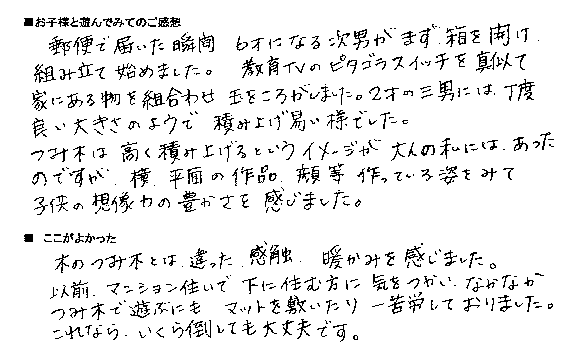 ■お子様と遊んでみてのご感想
郵便で届いた瞬間 6才になる次男がまず箱を開け、
組み立て始めました。 教育TVのピタゴラスイッチを真似て
家にある物を組合わせ 玉をころがしました。2才の三男には、丁度
良い大きさのようで 積み上げ易い様でした。
つみ木は 高く積み上げるというイメージが 大人の私には、あった
のですが、横、平面の作品、顔等 作っている姿をみて
子供の想像力の豊かさを感じました。
■ ここがよかった
木のつみ木とは、違った、感触、暖かみを感じました。
以前、マンション住いで 下に住む方に 気をつかい、なかなか
つみ木で遊ぶにも マットを敷いたり 一苦労しておりました。
これなら、いくら倒しても大丈夫です。